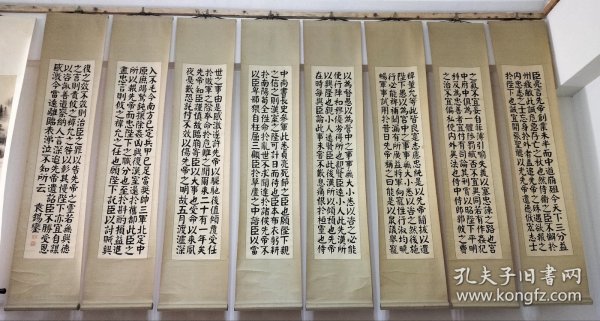 臣亮言先帝創業未半而中道崩殂今天下三分益
州疲敝此誠危急存亡之秋也然侍衛之臣不懈於
内忠志之士忘身於外者蓋追先帝之殊遇欲報之
於陛下也誠宜開張聖聽以光先帝遺德恢宏志士
之氣不宜妄自菲薄引喻失義以塞忠諫之路也宮
中府中俱為一體陟罰臧否不宜異同若有作姦犯
科及為忠善者宜付有司論其刑賞以昭陛下平明
之治不宜偏私使內外異法也侍中侍郎郭攸之費
禕董允等此皆良實志慮忠純是以先帝簡拔以遺
陛下愚以為宮中之事事無大小悉以咨之然後施
行必能裨補闕漏有所廣益將軍向寵性行淑均曉
暢軍事試用於昔日先帝稱之曰能是以眾議舉寵
以為督愚以為營中之事事無大小悉以咨之必能
使行陣和穆優劣得所也親賢臣遠小人此先漢所
以興隆也親小人遠賢臣此後漢所以傾頹也先帝
在時每與臣論此事未嘗不歎息痛恨於桓靈也侍
中尚書長史參軍此悉貞亮死節之臣也願陛下親
之信之則漢室之隆可計日而待也臣本布衣躬耕
於南陽苟全性命於亂世不求聞達於諸侯先帝不
以臣卑鄙猥自枉屈三顧臣於草廬之中諮臣以當
世之事由是感激遂許先帝以驅馳後值傾覆受任
於敗軍之際奉命於危難之間爾來二十有一年矣
先帝知臣謹慎故臨崩寄臣以大事也受命以來夙
夜憂歎恐託付不效以傷先帝之明故五月渡瀘深
入不毛今南方已定兵甲已足當獎帥三軍北定中
原庶竭駑鈍攘除姦凶興復漢室還於舊都此臣之
所以報先帝而忠陛下之職分也至於斟酌損益進
盡忠言則攸之禕允之任也願陛下託臣以討賊興
復之效不效則治臣之罪以告先帝之靈若無興德
之言則責攸之禕允等之咎以彰其慢陛下亦宜自謀
以咨諏善道察納雅言深追先帝遺詔臣不勝受恩
感激今當遠離臨表涕泣不知所云
孔夫子旧书网
www.kongfz.com